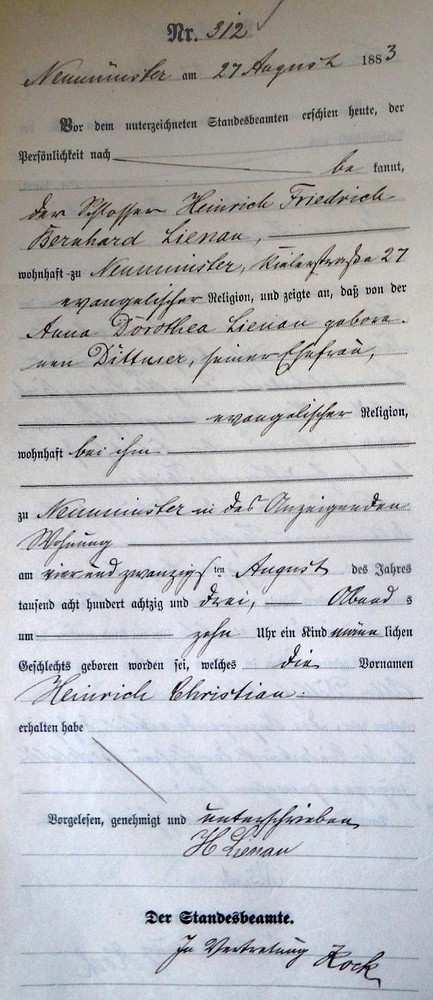 Nr. 312
Neumünster am 27 August 1883
Vor dem unterzeichneten Standesbeamten erschien heute, der
Persönlichkeit nach be kannt,
der Schlosser Heinrich Friedrich
Bernhard Lienau,
wohnhaft zu Neumünster, Kielerstraße 27
evangelischer Religion, und zeigte an, daß von der
Anna Dorothea Lienau gebore-
nen Dittmer, seiner Ehefrau,
evangelischer Religion,
wohnhaft bei ihm
zu Neumünster in des Anzeigenden
Wohnung
am vier und zwanzigsten August des Jahres
tausend acht hundert achtzig und drei, Abend s
um zehn Uhr ein Kind männ lichen
Geschlechts geboren worden sei, welches die Vornamen
Heinrich Christian.
erhalten habe
Vorgelesen, genehmigt und unterschrieben
H Lienau
Der Standesbeamte.
In Vertretung
Kock